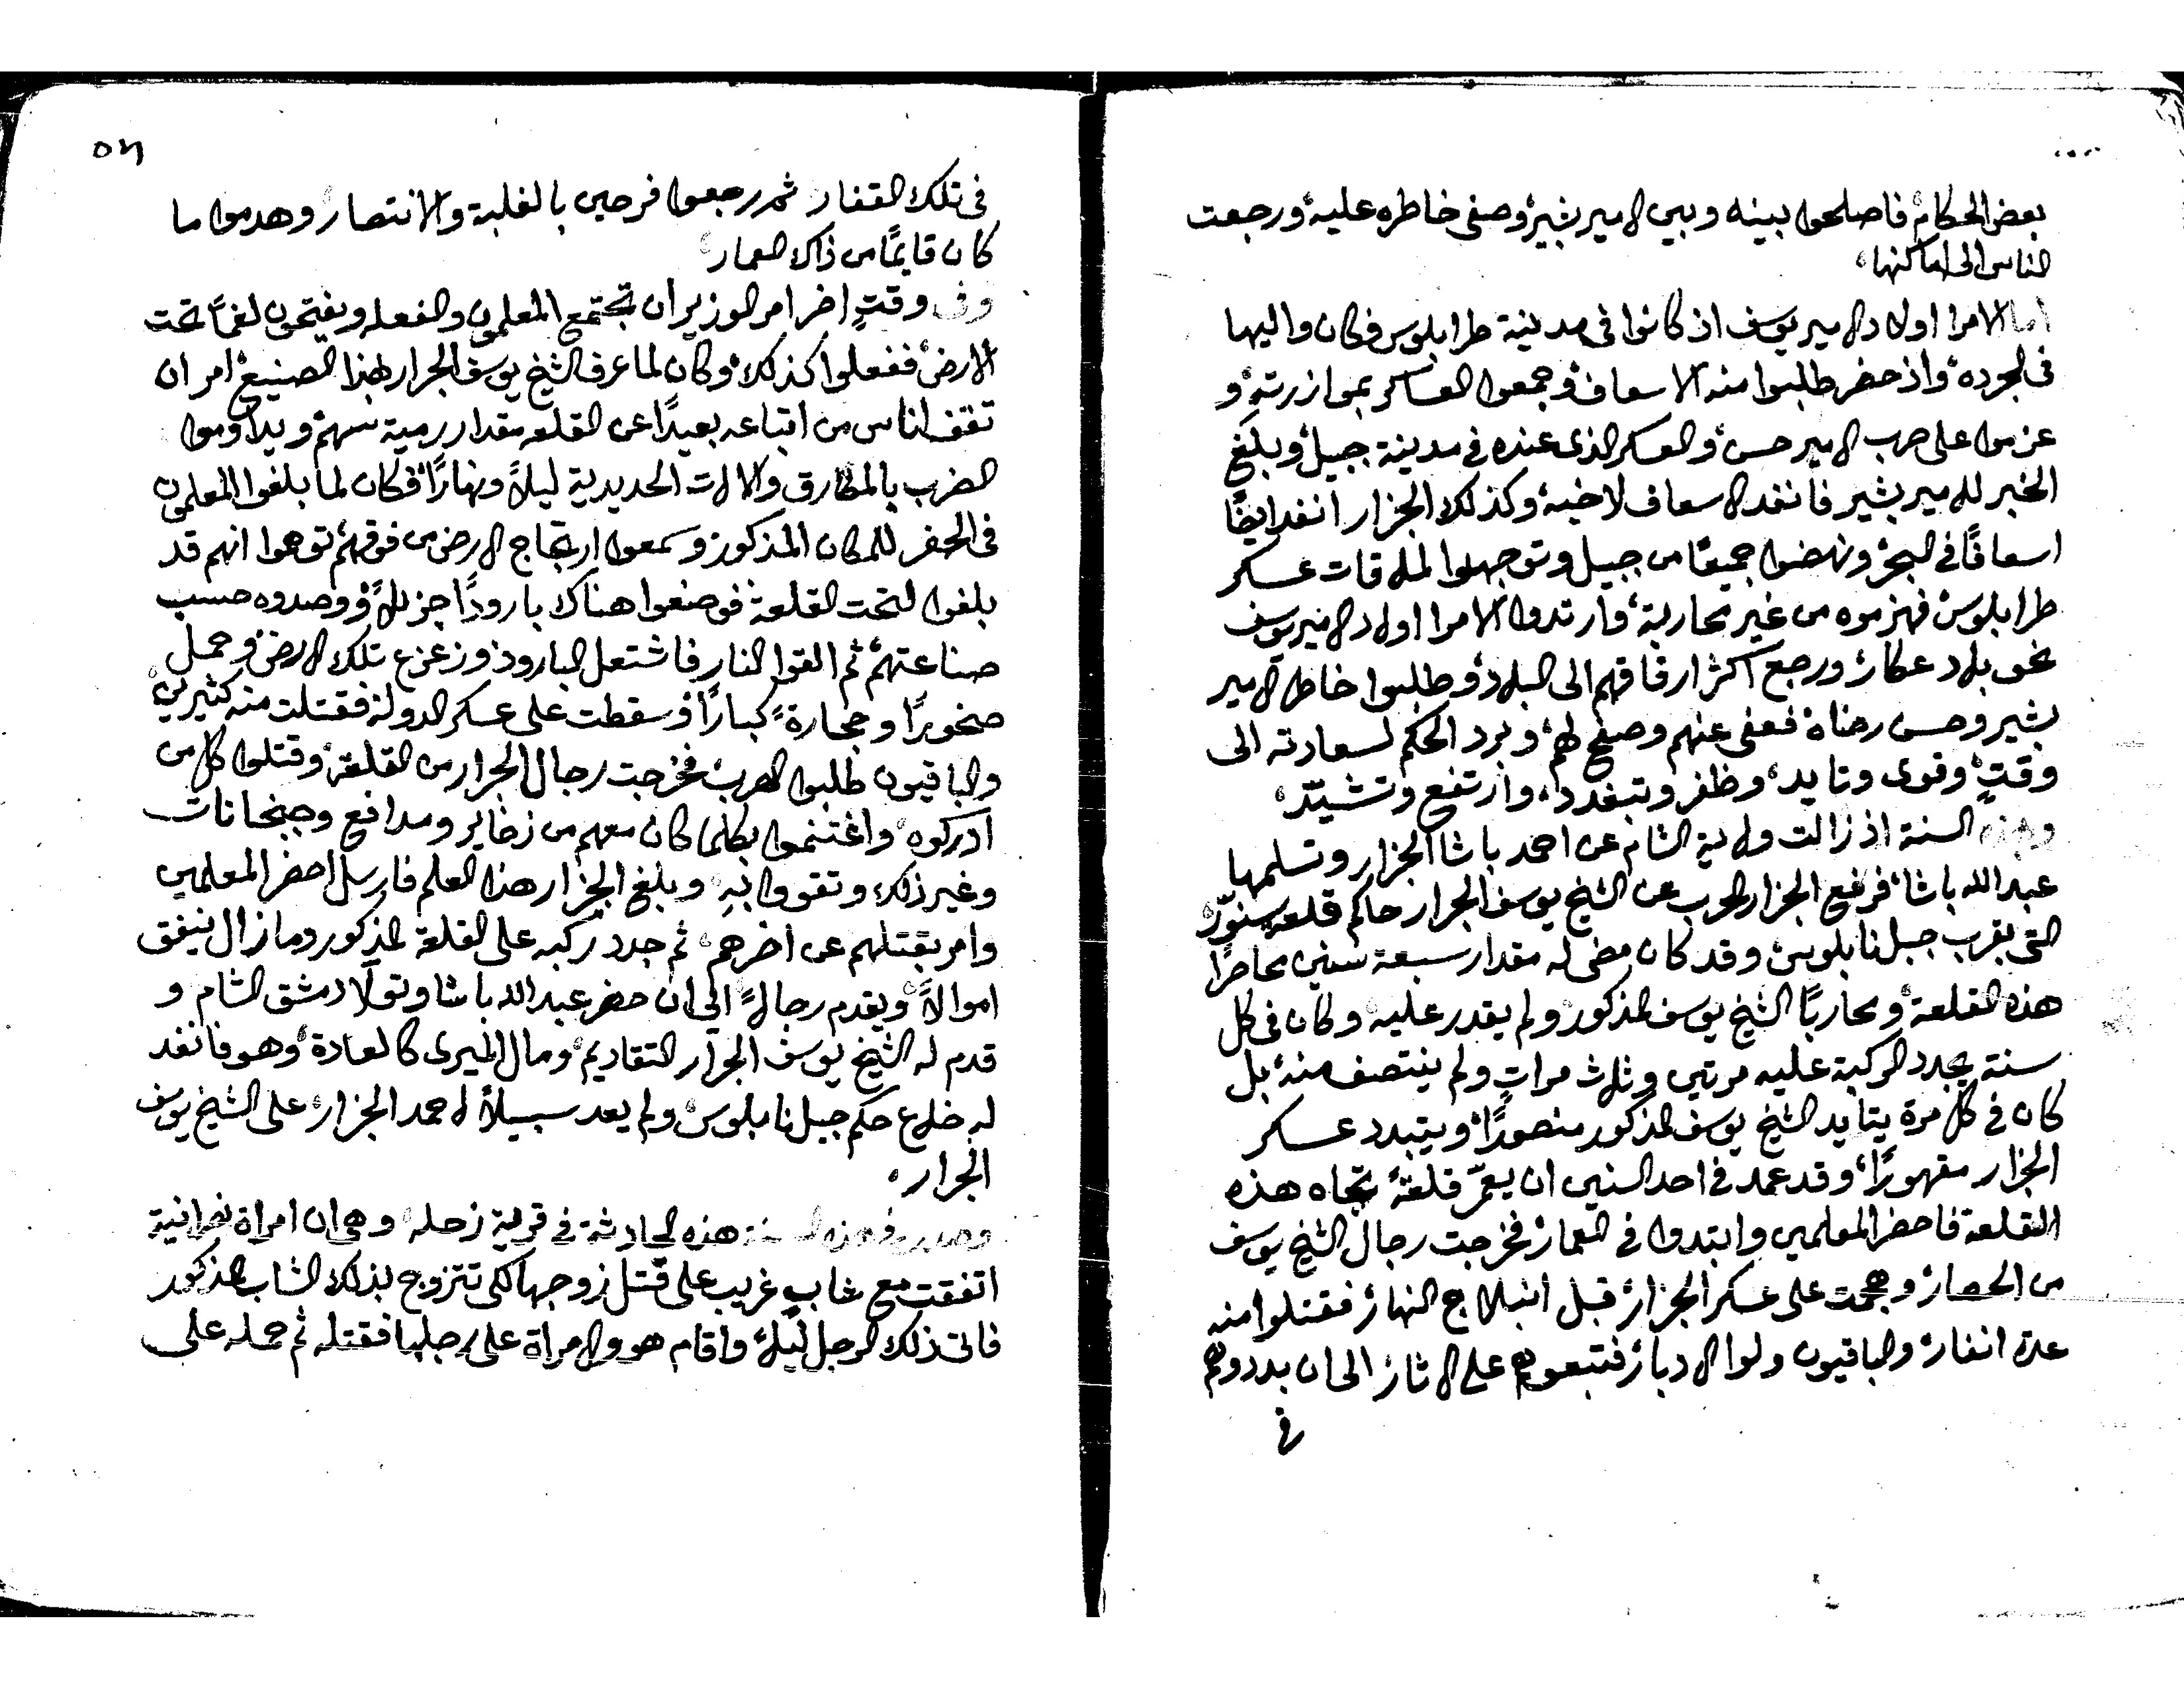 بعض الحكام، فاصلحوا بينه وبين الامير بشير، وصفى خاطره عليه، ورجعت
الناس الى اماكنها،
اما الامرا اولاد الامير يوسف اذ كانوا فى مدينة طرابلوس، وكان واليها
فى الجوده، واذ حضر طلبوا منه الاسعاف، وجمعوا العساكر بموازرته، و
عزموا على حرب الامير حسن، والعسكر الذى عنده فى مدينة جبيل، وبلغ
الخبر للامير بشير فانفد الاسعاف لاخيه، وكذلك الجزار انفد ايضًا
اسعافًا فى البحر، ونهضوا جميعًا من جبيل وتوجهوا لملاقات عسكر
طرابلوس، فهزموه من غير محاربة، وارتدوا الامرا اولاد الامير يوسف
نحو بلاد عكار، ورجع اكثر ارفاقهم الى البلاد، وطلبوا خاطر الامير
بشير وحسن رضاه، فعفى عنهم وصفح لهم، وبرد الحكم لسعادته الى
وقتٍ، وقوى وتايد، وظفر وتبغدد، وارتفع وتشيّد،
وبهذه السنة اذ زالت ولاية الشام عن احمد باشا الجزار وتسلمها
عبدالله باشا، فرفع الجزار الحرب عن الشيخ يوسف الجرار حاكم قلعة سنوّر،
التى بقرب جبل نابلوس، وقد كان مضى له مقدار سبعة سنين محاصرًا
هذه القلعة، ومحاربًا الشيخ يوسف المذكور، ولم يقدر عليه، وكان فى كل
سنة يجدد الركبة عليه مرتين وثلاث مرات ولم ينتصف منه، بل
كان فى كل مرة يتايد الشيخ يوسف المذكور منصورًا، ويتبدد عسكر
الجزار مقهورًا، وقد عمد فى احد السنين ان يعمّر قلعةً تجاه هذه
القلعة فاحضر المعلمين وابتدوا فى العمار، فخرجت رجال الشيخ يوسف
من الحصار، وهجمت على عسكر الجزار، قبل انبلاج النهار، فقتلوا منه
عدة انفار، والباقيون ولوا الادبار، فتبعوهم على الاثار، الى ان بددوهم
فى
٥٦
فى تلك القفار، ثم رجعوا فرحين بالغلبة والانتصار، وهدموا ما
كان قايمًا من ذاك العمار،
وفى وقتٍ اخر امر الوزير ان تجتمع المعلمون والفعله ويفتحون لغمًا تحت
الارض، ففعلوا كذلك، وكان لما عرف الشيخ يوسف الجرار بهذا الصنيع، امر ان
تقف اناس من اتباعه بعيدًا عن القلعه مقدار رمية سهم، ويداوموا
الضرب بالمطارق والالات الحديدية ليلاً ونهارًا، فكان لما بلغوا المعلمون
فى الحفر للمكان المذكور، وسمعوا ارتجاج الارض من فوقهم، توهموا انهم قد
بلغوا لتحت القلعة، فوضعوا هناك بارودًا جزيلاً، ورصدوه حسب
صناعتهم، ثم القوا النار، فاشتعل البارود، وزعزع تلك الارض، وحمل
صخورًا وحجارةً كبارًا، وسقطت على عسكر الدولة، فقتلت منه كثيرين،
والباقيون طلبوا الهرب، فخرجت رجال الجرار من القلعة، وقتلوا كل من
ادركوه، واغتنموا بكلما كان معهم من زخاير ومدافع وجبخانات
وغير ذلك، وتقووا به، وبلغ الجزار هذا العلم فارسل احضر المعلمين
وامر بقتلهم عن اخرهم، ثم جدد ركبه على القلعة المذكور، وما زال ينفق
اموالاً، ويقدم رجالاً، الى ان حضر عبدالله باشا وتولا دمشق الشام، و
قدم له الشيخ يوسف الجرار التقاديم، ومال الميرى كالعادة، وهو فانفد
له خلاع حكم جبل نابلوس، ولم يعد سبيلاً لاحمد الجزار، على الشيخ يوسف
الجرار،
وصدر فى هذه السنة هذه الحادثة فى قرية زحله، وهى ان امراة نصرانية
اتفقت مع شابٍ غريب على قتل زوجها، لكى تتزوج بذلك الشاب المذكور
فاتى ذلك الرجل ليلاً، واقام هو والامراة على رجلها فقتله، ثم حمله على